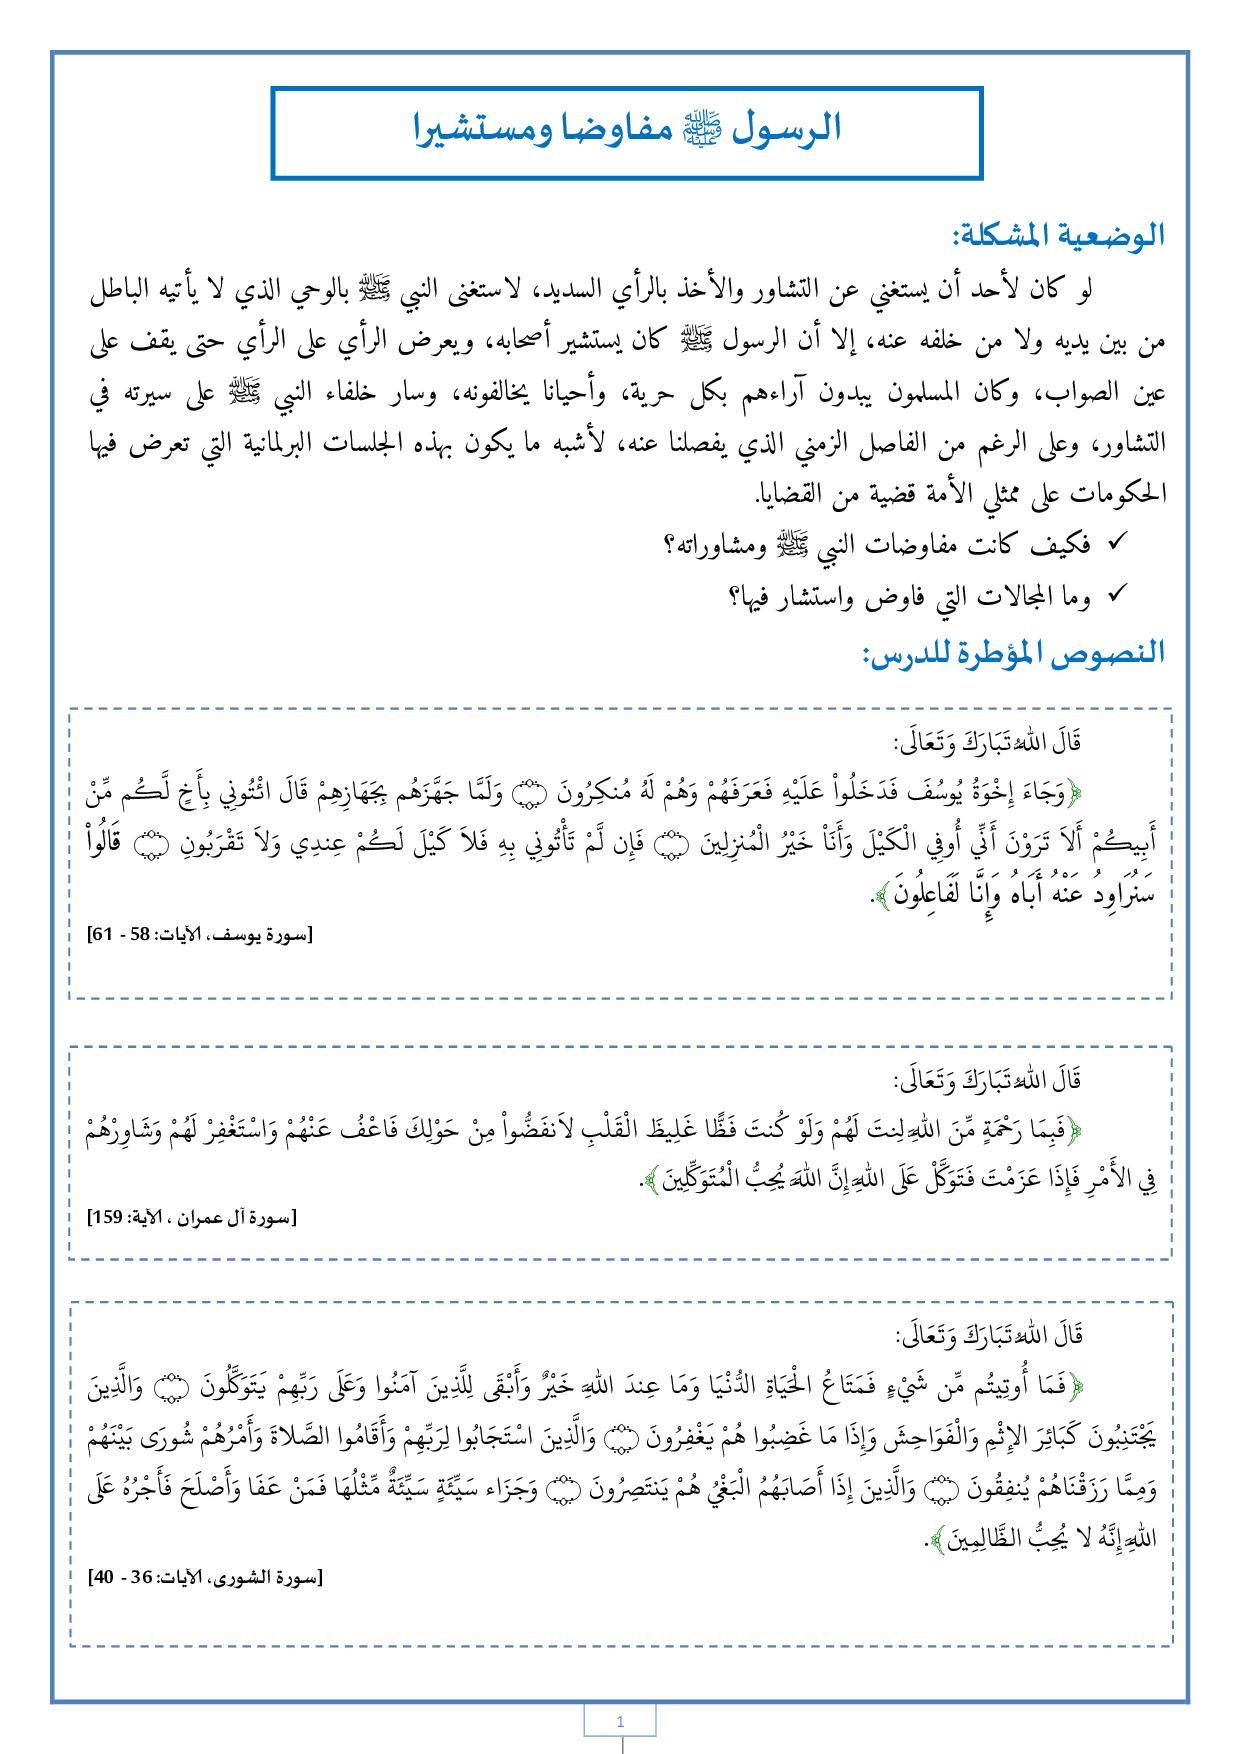 الرسول ﷺ مفاوضا ومستشيرا
الوضعية المشكلة:
لو كان لأحد أن يستغني عن التشاور والأخذ بالرأي السديد، لاستغنى النبي ﷺ بالوحي الذي لا يأتيه الباطل
من بين يديه ولا من خلفه عنه، إلا أن الرسول ﷺ كان يستشير أصحابه، ويعرض الرأي على الرأي حتى يقف على
عين الصواب، وكان المسلمون يبدون آراءهم بكل حرية، وأحيانا يخالفونه، وسار خلفاء النبي ﷺ على سيرته في
التشاور، وعلى الرغم من الفاصل الزمني الذي يفصلنا عنه، لأشبه ما يكون بهذه الجلسات البرلمانية التي تعرض فيها
الحكومات على ممثلي الأمة قضية من القضايا.
✓ فكيف كانت مفاوضات النبي ﷺ ومشاوراته؟
✓ وما المجالات التي فاوض واستشار فيها؟
النصوص المؤطرة للدرس:
قَالَ اللهُ تَبَارَكَ وَتَعَالَى:
﴿وَجَاءَ إِخْوَةُ يُوسُفَ فَدَخَلُواْ عَلَيْهِ فَعَرَفَهُمْ وَهُمْ لَهُ مُنكِرُونَ ۝ وَلَمَّا جَهَّزَهُم بِجَهَازِهِمْ قَالَ ائْتُونِي بِأَخٍ لَّكُم مِّنْ
أَبِيكُمْ أَلاَ تَرَوْنَ أَنِّي أُوفِي الْكَيْلَ وَأَنَاْ خَيْرُ الْمُنزِلِينَ ۝ فَإِن لَّمْ تَأْتُونِي بِهِ فَلاَ كَيْلَ لَكُمْ عِندِي وَلاَ تَقْرَبُونِ ۝ قَالُواْ
سَنُرَاوِدُ عَنْهُ أَبَاهُ وَإِنَّا لَفَاعِلُونَ﴾.
[سورة يوسف، الآيات: 58 - 61]
قَالَ اللهُ تَبَارَكَ وَتَعَالَى:
﴿فَبِمَا رَحْمَةٍ مِّنَ اللهِ لِنتَ لَهُمْ وَلَوْ كُنتَ فَظًّا غَلِيظَ الْقَلْبِ لاَنفَضُّواْ مِنْ حَوْلِكَ فَاعْفُ عَنْهُمْ وَاسْتَغْفِرْ لَهُمْ وَشَاوِرْهُمْ
فِي الأَمْرِ فَإِذَا عَزَمْتَ فَتَوَكَّلْ عَلَى اللهِ إِنَّ اللهَ يُحِبُّ الْمُتَوَكِّلِينَ﴾.
[سورة آل عمران ، الآية: 159]
قَالَ اللهُ تَبَارَكَ وَتَعَالَى:
﴿فَمَا أُوتِيتُم مِّن شَيْءٍ فَمَتَاعُ الْحَيَاةِ الدُّنْيَا وَمَا عِندَ اللهِ خَيْرٌ وَأَبْقَى لِلَّذِينَ آمَنُوا وَعَلَى رَبِّهِمْ يَتَوَكَّلُونَ ۝ وَالَّذِينَ
يَجْتَنِبُونَ كَبَائِرَ الإِثْمِ وَالْفَوَاحِشَ وَإِذَا مَا غَضِبُوا هُمْ يَغْفِرُونَ ۝ وَالَّذِينَ اسْتَجَابُوا لِرَبِّهِمْ وَأَقَامُوا الصَّلاةَ وَأَمْرُهُمْ شُورَى بَيْنَهُمْ
وَمِمَّا رَزَقْنَاهُمْ يُنفِقُونَ ۝ وَالَّذِينَ إِذَا أَصَابَهُمُ الْبَغْيُ هُمْ يَنتَصِرُونَ ۝ وَجَزَاء سَيِّئَةٍ سَيِّئَةٌ مِّثْلُهَا فَمَنْ عَفَا وَأَصْلَحَ فَأَجْرُهُ عَلَى
اللهِ إِنَّهُ لا يُحِبُّ الظَّالِمِينَ﴾.
[سورة الشورى، الآيات: 36 - 40]
1